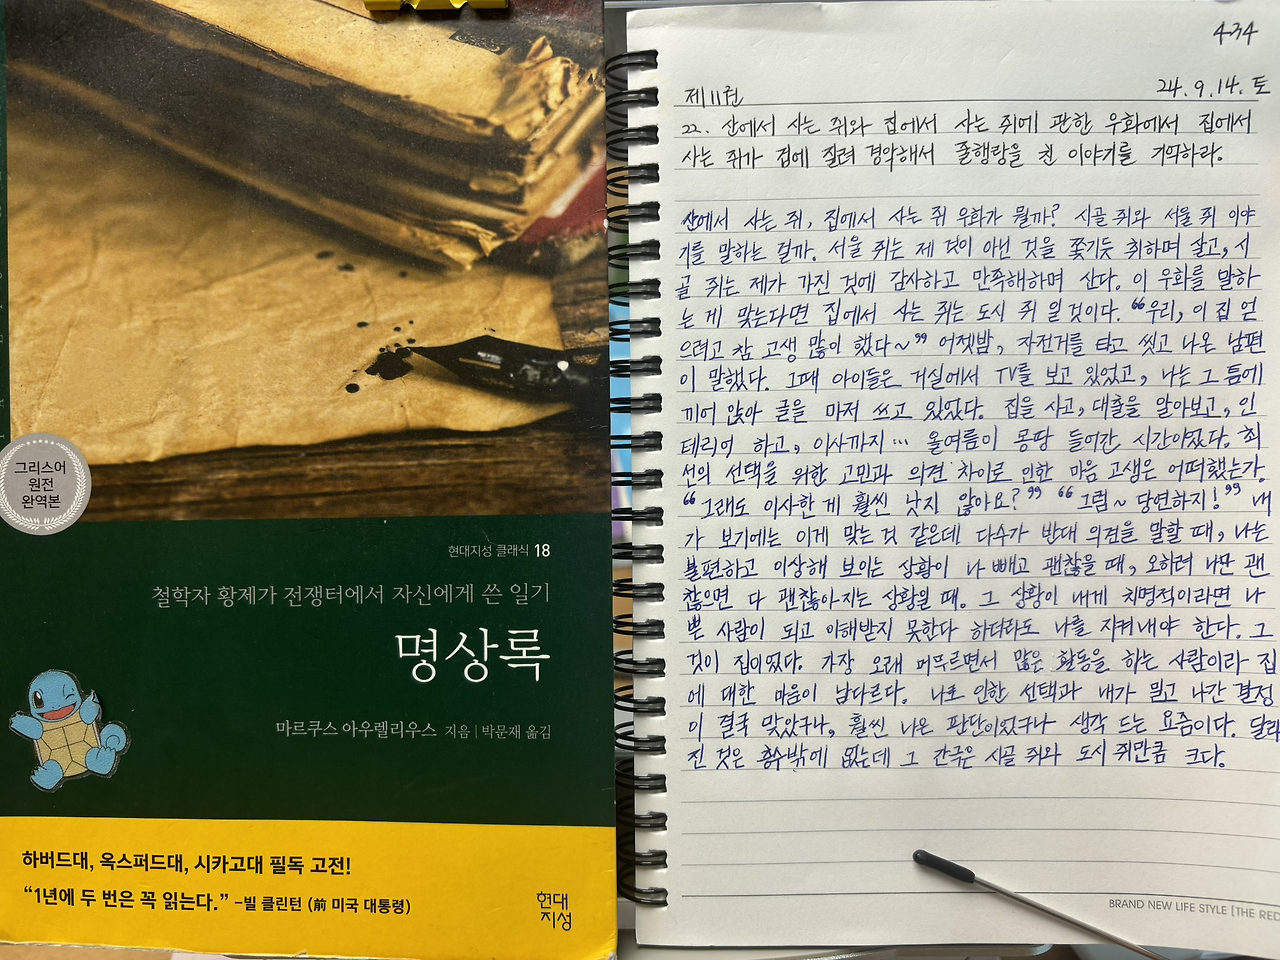 그리스어
원전
완역본
현대지성 클래식 18
철학자 황제가 전쟁터에서 자신에게 쓴 일기
명상록
마르쿠스 아우렐리우스 지음 | 박문재 옮김
하버드대, 옥스퍼드대, 시카고대 필독 고전!
“1년에 두 번은 꼭 읽는다.” -빌 클린턴 (前 미국 대통령)
현대
지성
434
제11권
24. 9. 14. 토
22. 산에서 사는 쥐와 집에서 사는 쥐에 관한 우화에서 집에서
사는 쥐가 집에 질려 경악해서 줄행랑을 친 이야기를 기억하라.
산에서 사는 쥐, 집에서 사는 쥐 우화가 뭘까? 시골 쥐와 서울 쥐 이야
기를 말하는 걸까. 서울 쥐는 제 것이 아닌 것을 쫓기듯 취하며 살고, 시
골 쥐는 제가 가진 것에 감사하고 만족해하며 산다. 이 우화를 말하
는 게 맞는다면 집에서 사는 쥐는 도시 쥐 일 것이다. “우리, 이 집 얻
으려고 참 고생 많이 했다~” 어젯밤, 자전거를 타고 씻고 나온 남편
이 말했다. 그때 아이들은 거실에서 TV를 보고 있었고, 나는 그 틈에
끼어 앉아 글을 마저 쓰고 있었다. 집을 사고, 대출을 알아보고, 인
테리어 하고, 이사까지… 올여름이 몽땅 들어간 시간이었다. 최
선의 선택을 위한 고민과 의견 차이로 인한 마음 고생은 어떠했는가.
“그래도 이사한 게 훨씬 낫지 않아요?” “그럼~ 당연하지!” 내
가 보기에는 이게 맞는 것 같은데 다수가 반대 의견을 말할 때, 나는
불편하고 이상해 보이는 상황이 나 빼고 괜찮을 때, 오히려 나만 괜
찮으면 다 괜찮아지는 상황일 때. 그 상황이 내게 치명적이라면 나
쁜 사람이 되고 이해받지 못한다 하더라도 나를 지켜내야 한다. 그
것이 집이었다. 가장 오래 머무르면서 많은 활동을 하는 사람이라 집
에 대한 마음이 남다르다. 나로 인한 선택과 내가 밀고 나간 결정
이 결국 맞았구나, 훨씬 나은 판단이었구나 생각 드는 요즘이다. 달라
진 것은 층수밖에 없는데 그 간극은 시골 쥐와 도시 쥐만큼 크다.
BRAND NEW LIFE STYLE [THE RED